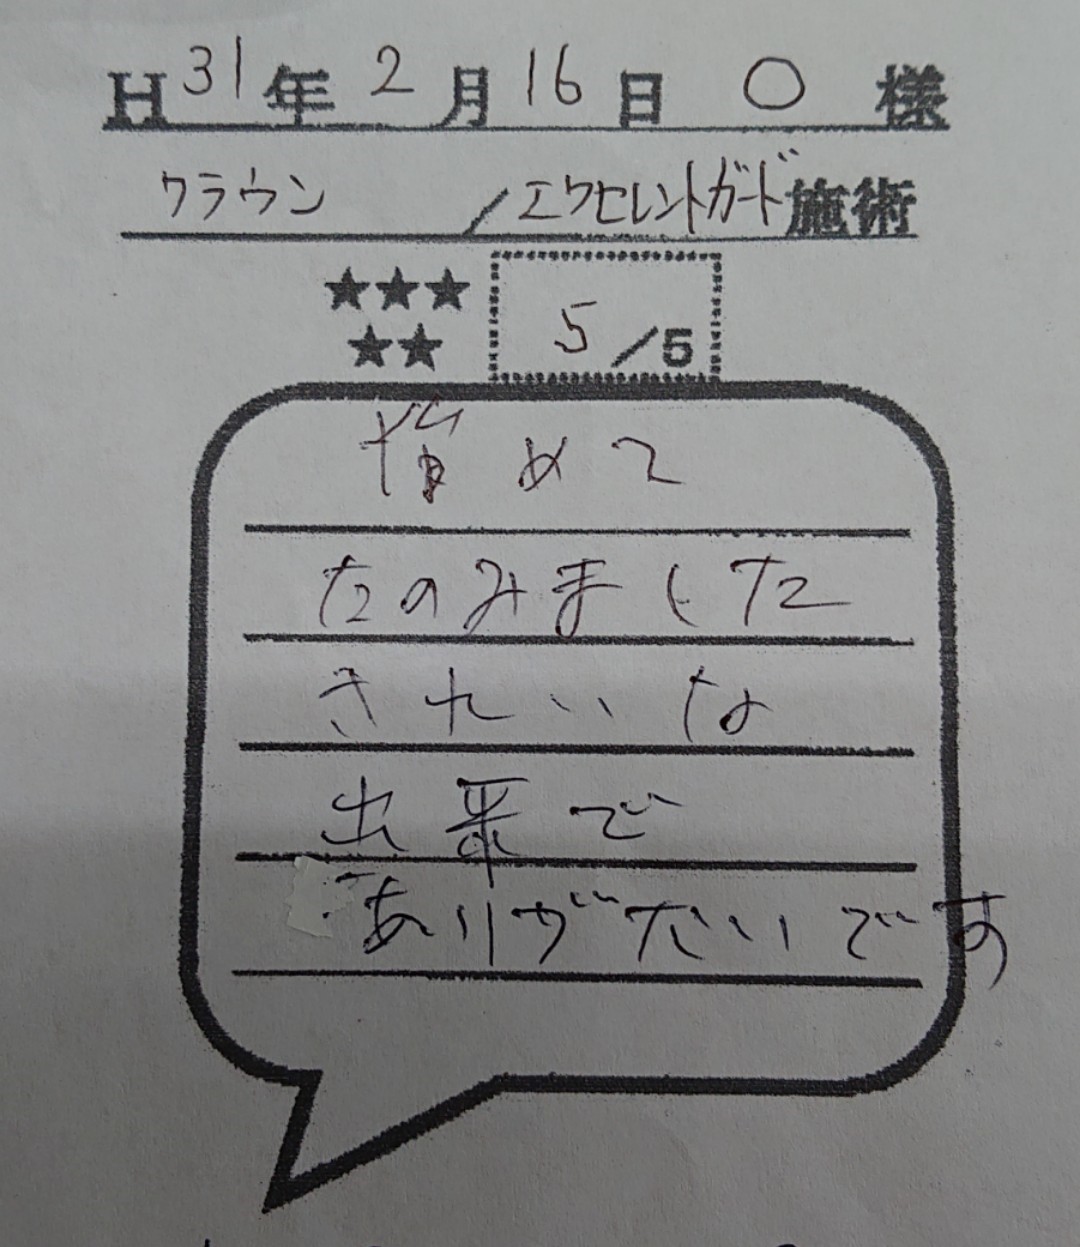 H31年2月16日 O 様
クラウン／エクセレントガード施術
★★★
★★
5／5
めて
たのみました
きれいな
出来で
ありがたいです